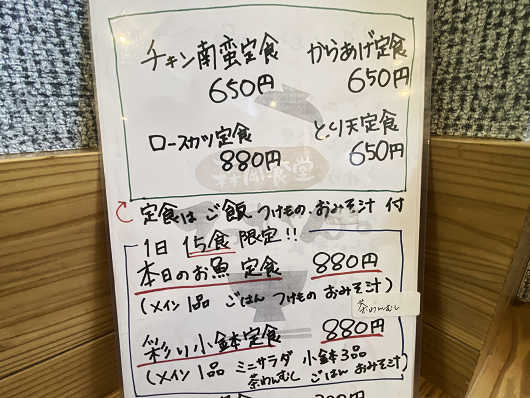 チキン南蛮定食 からあげ定食
650円 650円
ロースカツ定食 とり天定食
880円 650円
定食は ご飯 つけもの、おみそ汁 付
1日 15食 限定!!
本日のお魚 定食 880円
(メイン1品 ごはん つけもの おみそ汁)
茶わんむし
彩り小鉢定食 880円
(メイン1品 ミニサラダ 小鉢3品
茶わんむし ごはん おみそ汁)